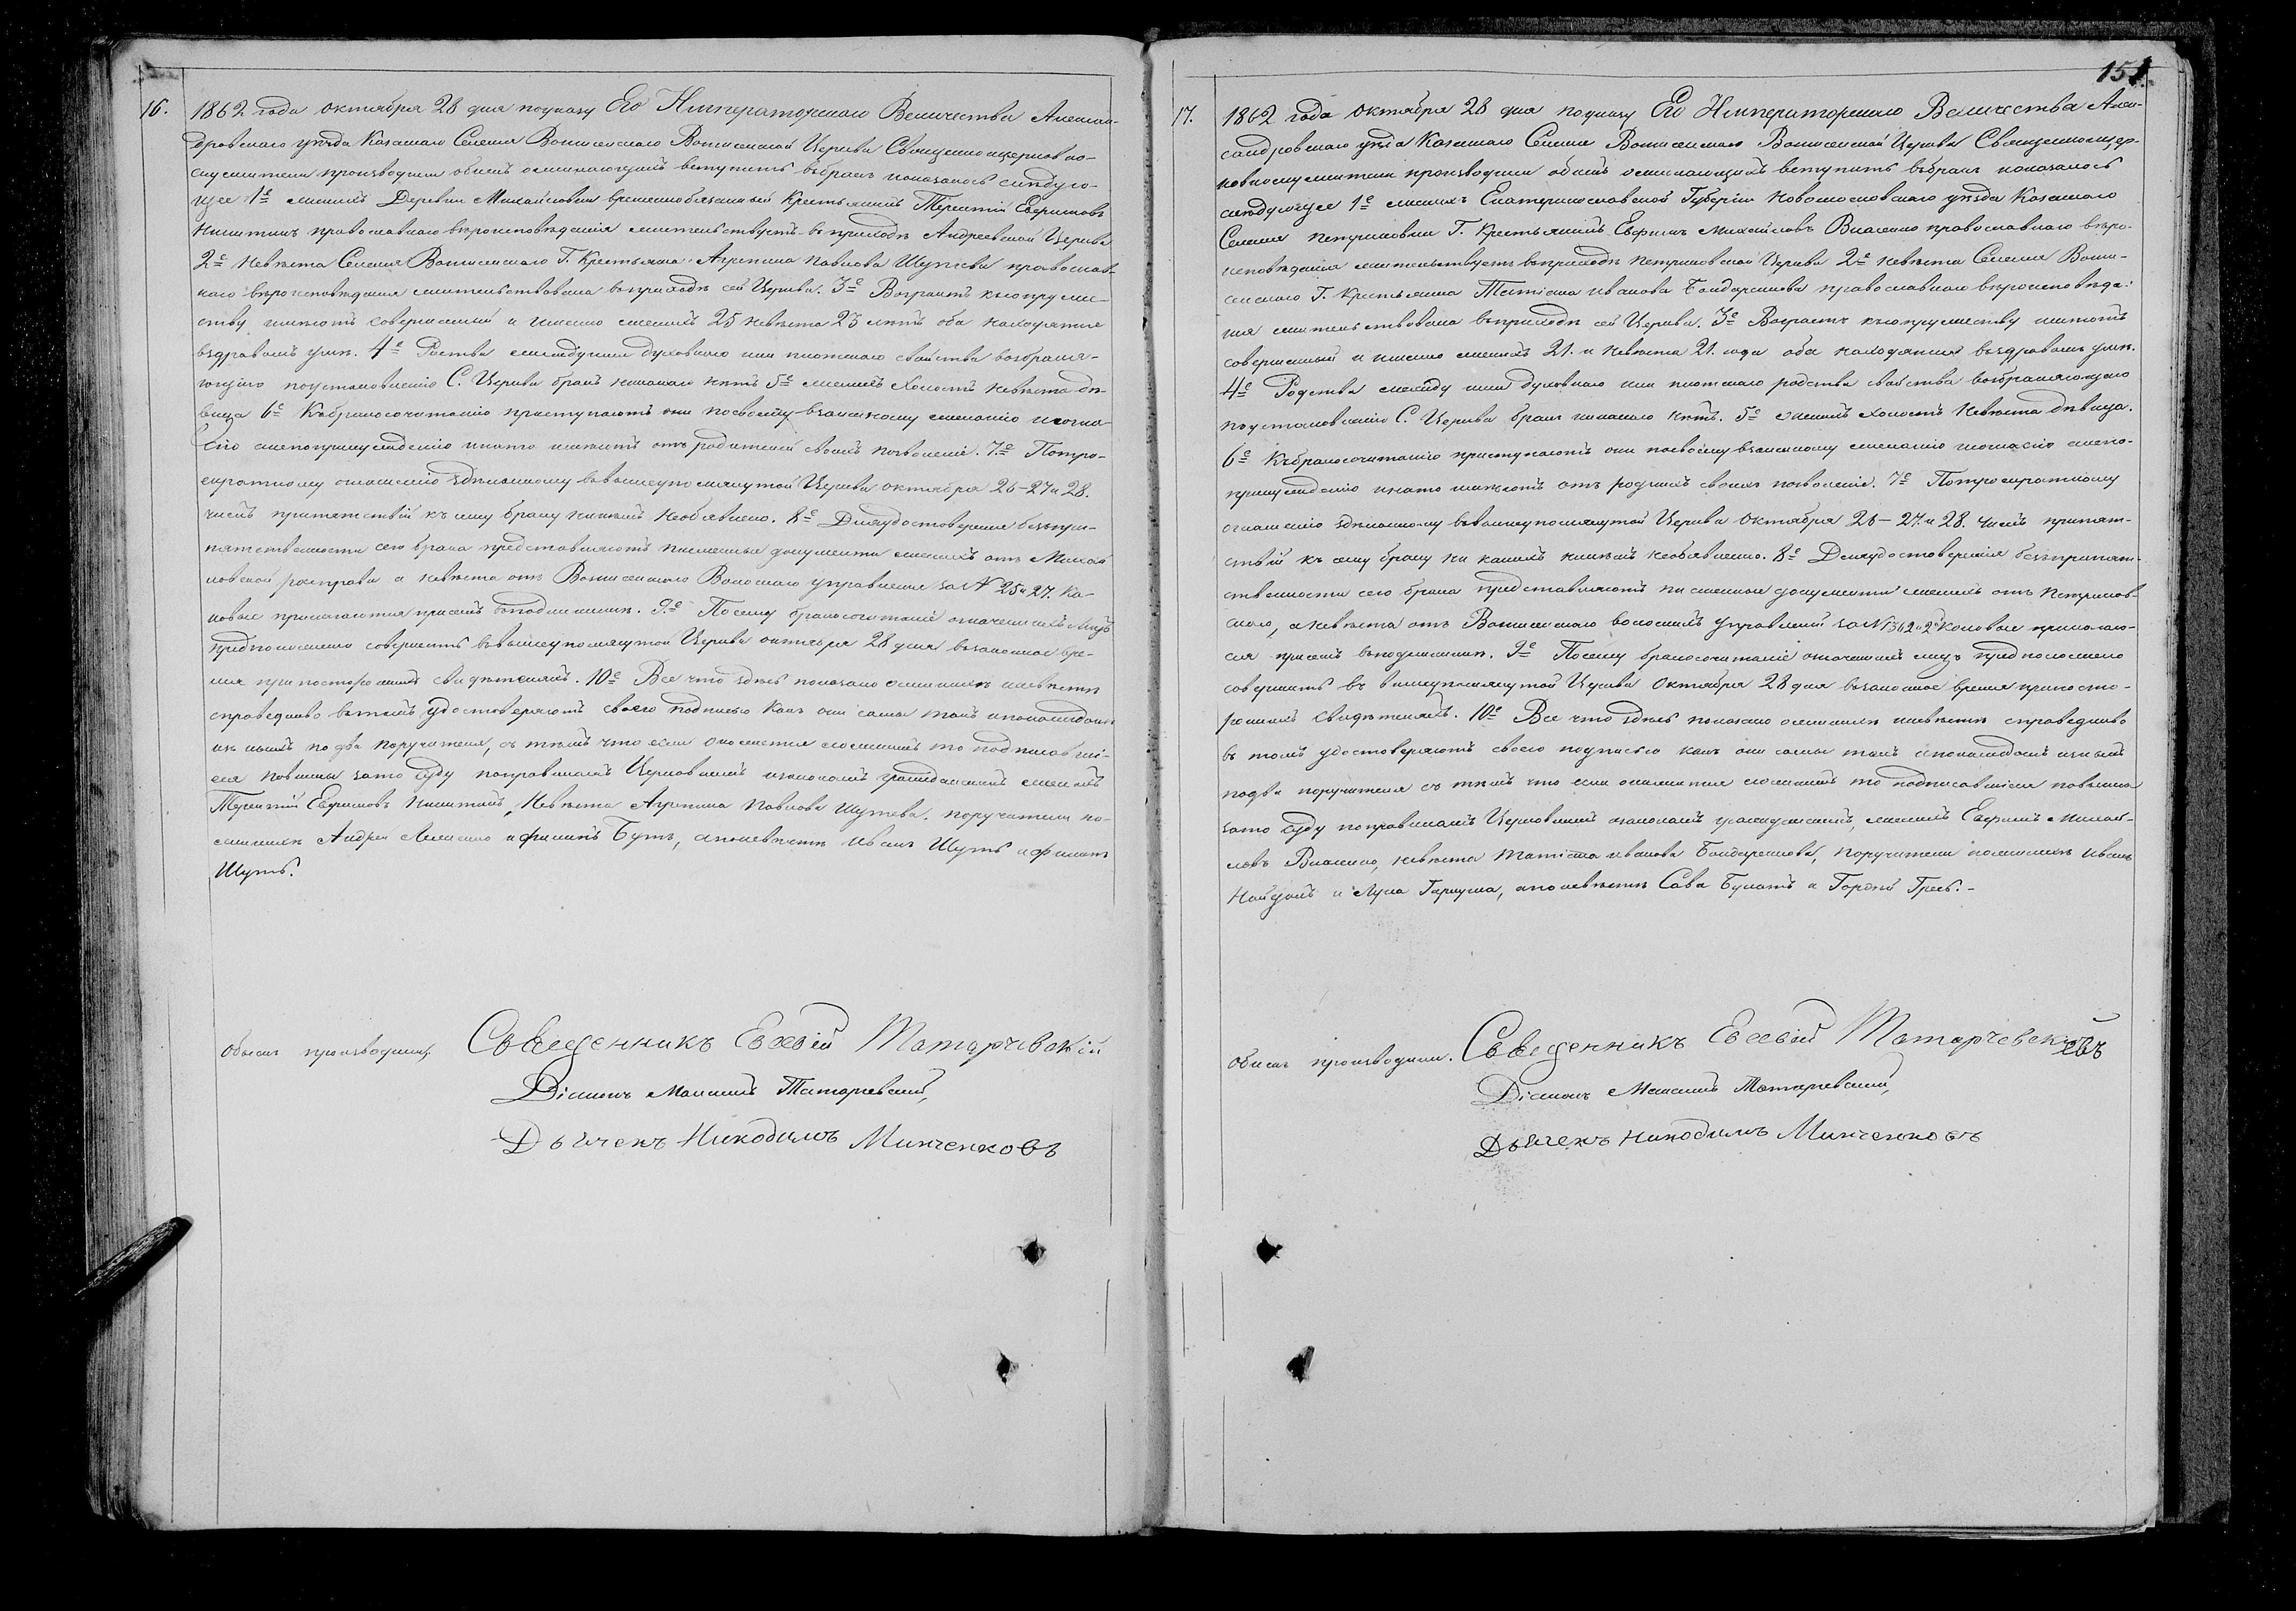 16. 1862 года октября 28 дня поуказу Его Императорскаго Величества Алексан-
дровскаго уѣзда Казеннаго Селенія Вознесенскаго Вознесенской Церкви Священноицерковно-
служители производили обыскъ ожелающихъ вступить вбракъ иоказалось слѣдую-
щее 1е женихъ Деревни Михайловки временнообязанный Крестьянинъ Терентій Ефримовъ
Никитинъ православнаго вѣроисповѣданія жительствуетъ вприходѣ Андреевской Церкви
2е Невѣста Селенія Вознесенскаго Г. Крестьянка Агрипина Павлова Шутева православ-
наго вѣроисповѣданія жительствовала вприходѣ сей Церкви. 3е Возрастъ ксупруже-
ству имѣютъ совершенный и именно женихъ 25 невѣста 23 лѣтъ оба находятся
вздравомъ умѣ. 4е Роства смеждуими духовнаго или плотскаго свойства возбраня-
ющаго поустановленію С. Церкви бракъ никакаго нѣтъ 5е Женихъ Холостъ невѣста дѣ-
вица 6е Кбракосочитанію приступаютъ они посвоему взаимному желанію исогла-
сію анепопринужденію инато имѣютъ отъ родителей своихъ позволеніе. 7е Потро-
екратному оглашенію здѣланному ввышеупомянутой Церкви октября 26-27 и 28.
числъ припятствій къ сему браку никѣмъ необявлено. 8е Дляудостоверенія безъпри-
пятственности сего брака представляютъ писменные документи женихъ отъ Михай
ловской расправи а невѣста отъ Вознесенскаго Волоснаго управленія за N 25 и 27. Ка-
ковые прилагаются присемъ вподлинникѣ. 9.е Посему бракосочитаніе означеныхъ лицъ
предположено совершить ввышеупомянутой Церкви октября 28 дня взаконное вре-
мя припостороннихъ свидѣтеляхъ. 10е Все что здѣсь показано оженихѣ иневѣстѣ
справедливо втомъ удостоверяютъ своею подписью какъ они сами такъ ипокаждомъ
из нихъ по два поручителя, съ тѣмъ что если окажется ложнымъ то подписавші-
еся повинны зато суду поправиламъ Церковнымъ изаконамъ гражданскимъ женихъ
Терентій Ефримовъ Никитинъ, Невѣста Агрипина Павлова Шутева. поручители по-
женихѣ Андрей Лященко ифилипъ Бутъ, апоневѣстѣ Иванъ Шуть ифилипъ
Шуть.
Обыскъ производили:
Священникъ Евсевій Татарчевскій
Діаконъ Максимъ Татарчевскій,
Дьячекъ Никодимъ Минченковъ
151.
17. 1862 года октября 28 дня поуказу Его Императорскаго Величества Алек-
сандровскаго уѣзда Казеннаго Селенія Вознесенскаго Вознесенской Церкви Священноицер-
ковнослужители производили обыскъ ожелающихъ вступить вбракъ иоказалось
слѣдующее 1е женихъ Екатеринославской Губерніи Новомосковскаго уѣзда Казеннаго
Селенія Петриковки Г. Крестьянинъ Ефримъ Михайловъ Власенко православнаго вѣро-
исповѣданія жительствуетъ вприходѣ Петриковской Церкви 2е Невѣста Селенія Возне-
сенскаго Г. Крестьянка Татіяна иванова Бондаренкова православнаго вѣроисповѣда-
нія жительствовала вприходѣ сей Церкви. 3е Возрастъ ксупружеству имѣютъ
совершенный и именно женихъ 21. и невѣста 21. года оба находятся вздравомъ умѣ.
4е Родства между ими духовнаго или плотскаго родства свойства возбраняющаго
поустановленію С. Церкви бракъ никакаго нѣтъ. 5е женихъ холостъ невѣста дѣвица.
6е Кбракосочитанію приступаютъ они посвоему взаимному желанію исогласію анепо-
принужденію инато имѣютъ отъ родныхъ своихъ позволеніе. 7е Потроекратному
оглашенію здѣланному ввышеупомянутой Церкви Октября 26-27. и 28. числъ припят-
ствій къ сему браку ни какихъ никѣмъ необявлено. 8е Дляудостоверенія безъприпят-
ственности сего брака представляютъ писменные документи женихъ отъ Петриков-
скаго, аневѣста отъ Вознесенскаго волосныхъ Управленій за N 1362 и 2 каковые прилагаю-
ся присемъ вподлинникѣ. 9е Посему бракосочитаніе означенныхъ лицъ предположено
совершить въ вышеупомянутой Церкви Октября 28 дня взаконное время припосто-
роннихъ Свидѣтеляхъ. 10е Все что здѣсь показано оженихѣ иневѣстѣ справедливо
въ томъ удостоверяютъ своею подписью какъ они сами такъ ипокаждомъ изнихъ
подва поручителя съ тѣмъ что если окажется ложнымъ то подписавшіеся повинны
зато суду поправиламъ Церковнымъ изаконамъ гражданскимъ, женихъ Ефримъ Михай-
ловъ Власенко, невѣста Татіана иванова Бондаренкова, поручители поженихѣ Иванъ
Найдонъ и Лука Гаркуша, апоневѣстѣ Сава Булатъ и Гордѣй Гресь.-
Обыскъ производили.
Священникъ Евсевій Татарчевскій
Діаконъ Максимъ Татарчевскій,
Дьячекъ Никодимъ Минченковъ